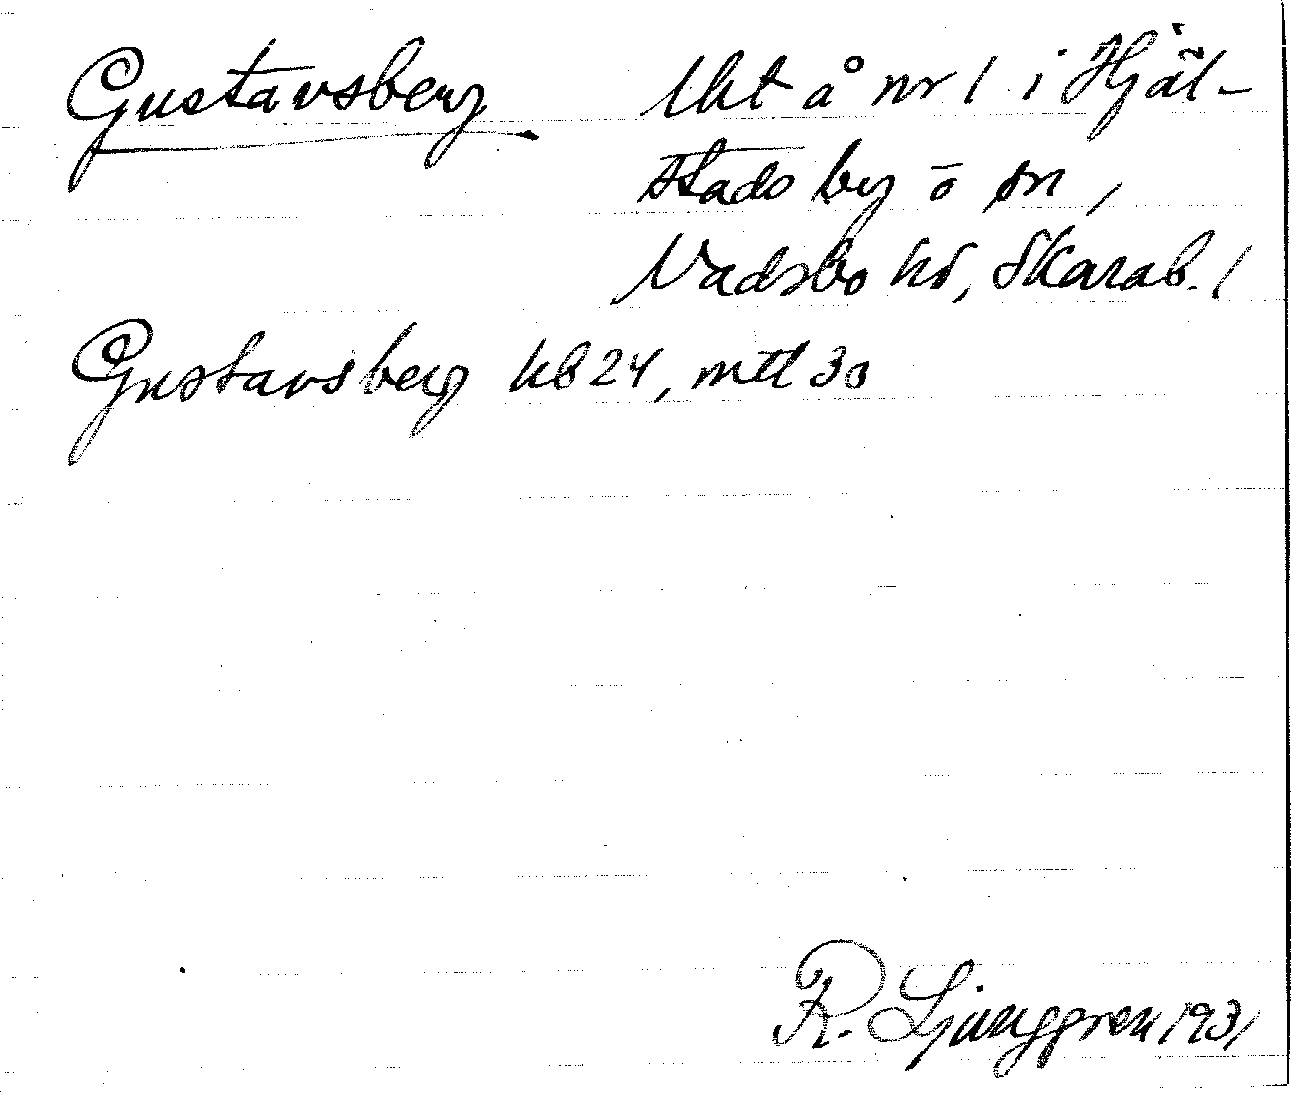 Gustavsberg Uht å nr 1 i Hjäl-
stads by o sn,
Vadsbo hd, Skarab. l
Gustavsberg kb 24, mtl 30
R. Ljunggren 1931